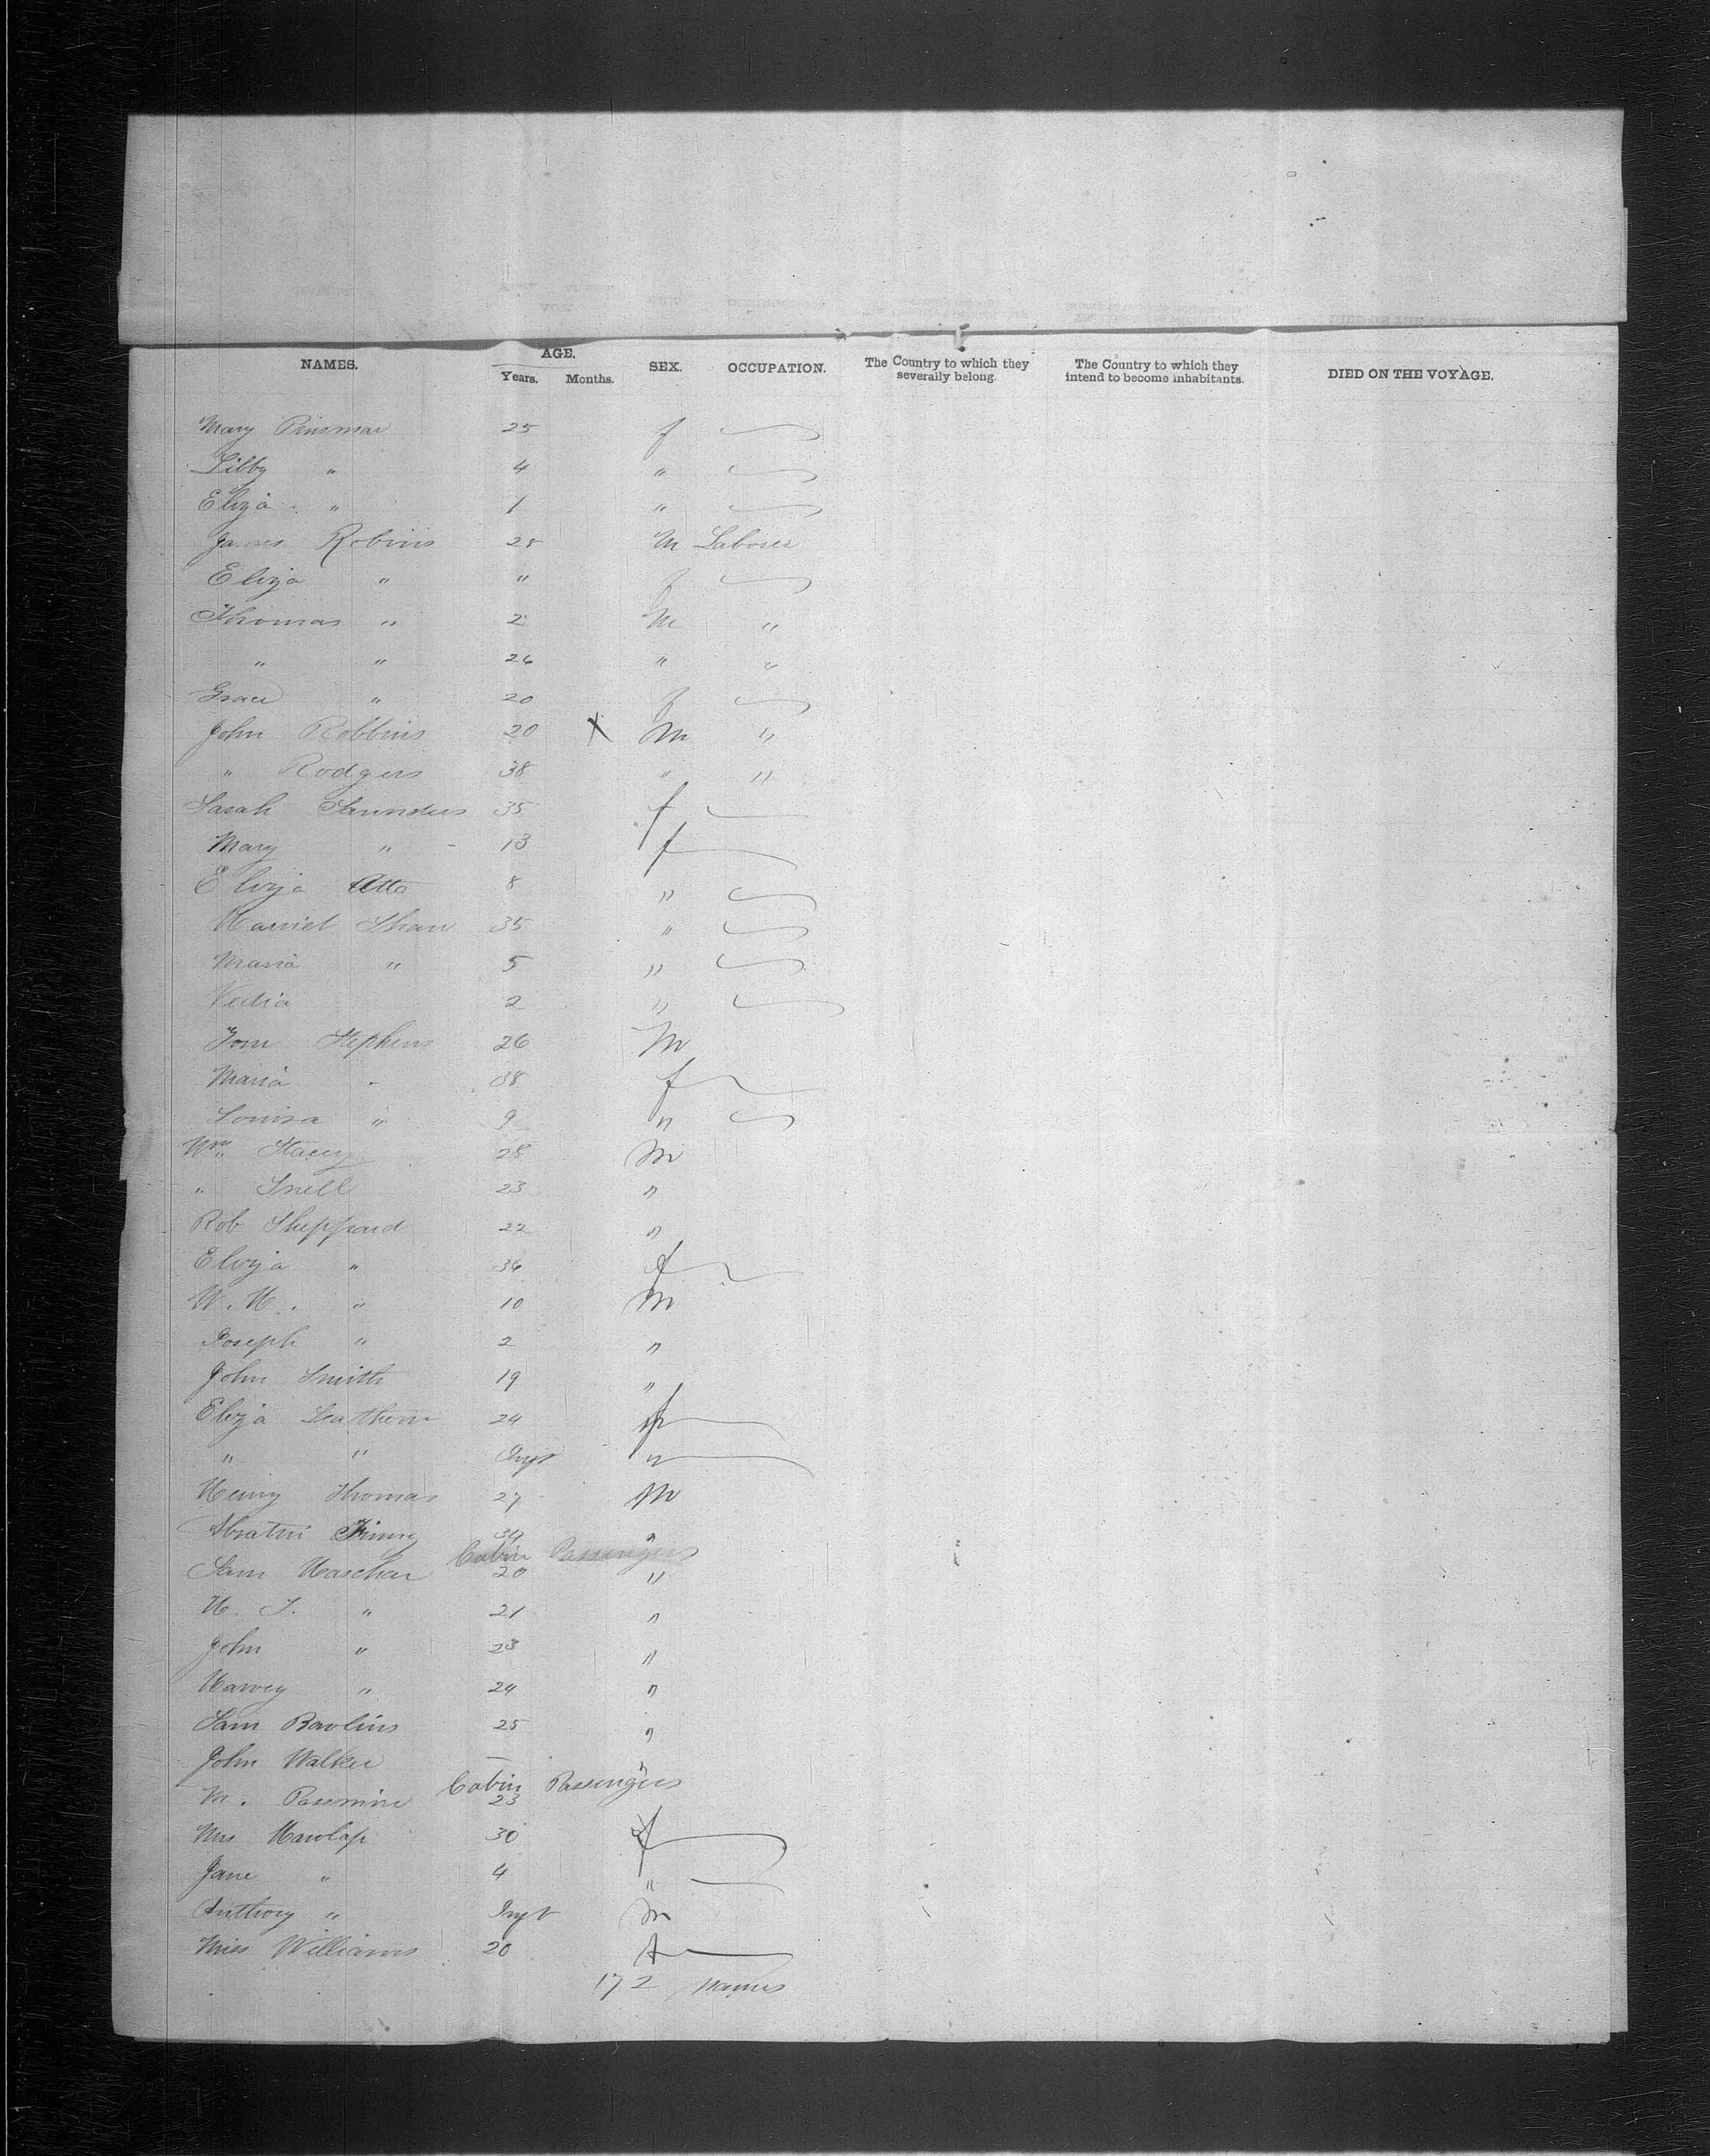 NAMES. AGE. Years. Months. SEX. OCCUPATION. The Country to which they severally belong. The Country to which they intend to become inhabitants. DIED ON THE VOYAGE.
Mary 25 f
Libby " 4 "
Eliza " 1 "
James Robins 28 M Laborer
Eliza " " f
Thomas " 2 M "
" " 26 " "
Grace " 20 f
John Robbins 20 X M "
" Rodgers 38 " "
Sarah Saunders 35 f
Mary " 13 f
Eliza 8 "
Harriet Shaw 35 "
Maria " 5 "
2 "
Tom Stephens 26 M
Maria " 38 f
Louisa " 9 "
Wm. Stacey 28 M
" Snell 23 "
Rob Sheppard 22 "
Eliza " 36 f
W. H. " 10 M
Joseph " 2 "
John Smith 19 "
Eliza 24 f
" " Inft "
Henry Thomas 27 M
34 "
Cabin Passengers
Sam 20 "
H. " 21 "
John " 23 "
Harvey " 24 "
Sam 25 "
John Walker "
Cabin Passengers
M. 23
Mrs 30 f
Jane " 4 "
Anthony " Inft M
Miss Williams 20 f
172 names